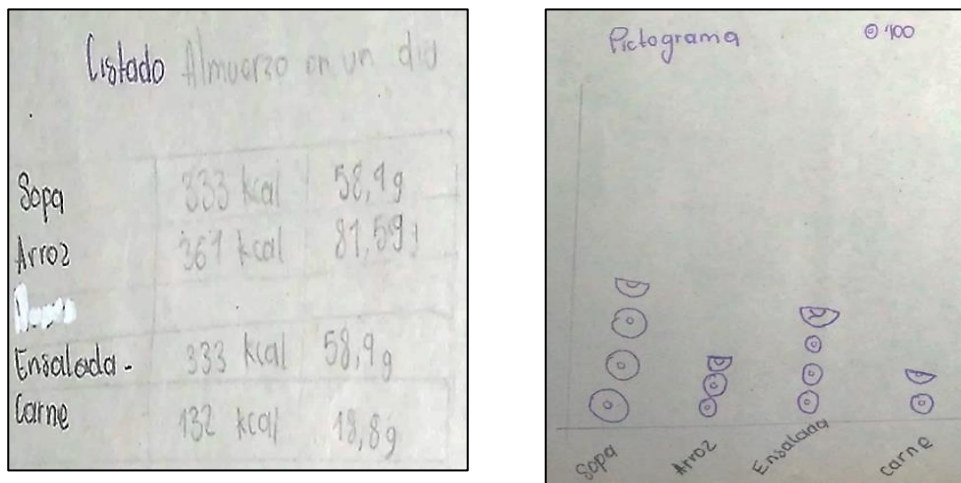 Listado Almuerzo en un dia
Sopa 333 kcal 58,9g
Arroz 367 kcal 81,59g
Ensalada- 333 kcal 58,9g
Carne 132 kcal 18,8g
Pictograma 100
Sopa Arroz Ensalada carne